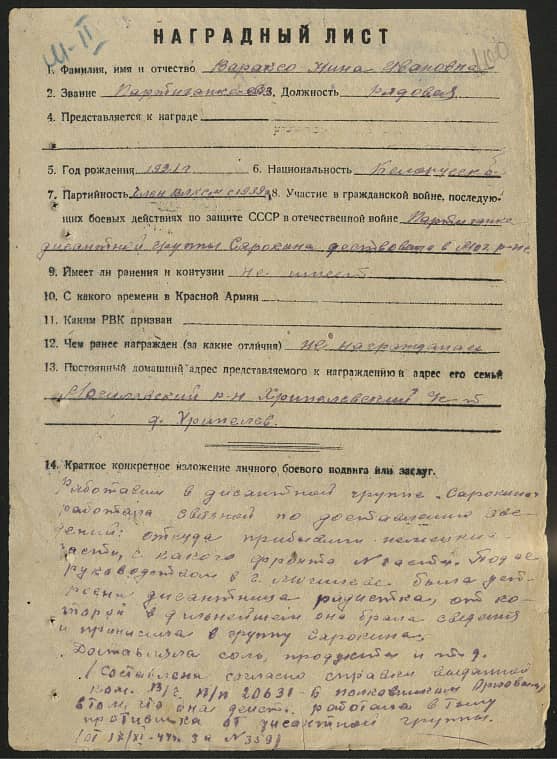 М-II
100
НАГРАДНЫЙ ЛИСТ
1. Фамилия, имя и отчество Вараксо Нина Ивановна
2. Звание Партизанка 3. Должность Рядовая
4. Представляется к награде
5. Год рождения 1921 г 6. Национальность Белорусска
7. Партийность Член ВЛКСМ с 1939 8. Участие в гражданской войне, последую-
щих боевых действиях по защите СССР в отечественной войне Партизанка
дисантной группы Сарокина действовала в Мог. р-не
9. Имеет ли ранения и контузии не имеет
10. С какого времени в Красной Армии
11. Каким РВК призван
12. Чем ранее награжден (за какие отличия) не награждалась
13. Постоянный домашний адрес представляемого к награждению и адрес его семьи
Могилевский р-н
д.
14. Краткое конкретное изложение личного боевого подвига или заслуг.
Работаем в дисантной группе „Сарокина"
работала связной по доставлению све-
дений: откуда прибыли немецкие
части, с какого фронта № части. Под ее
руководством в г. Могилеве была уст-
роена дисантница радистка, от ко-
торой в дальнейшем она брала сведения
и приносила в группу Сарокина.
Доставляла соль, продукты и т.д.
(Составлена согласно справки выданной
ком. В/ч п/п 20631-б полковником
в том, что она действ. работала в тылу
противника от дисантной группы.
(от 17/XI-44г за № 359)